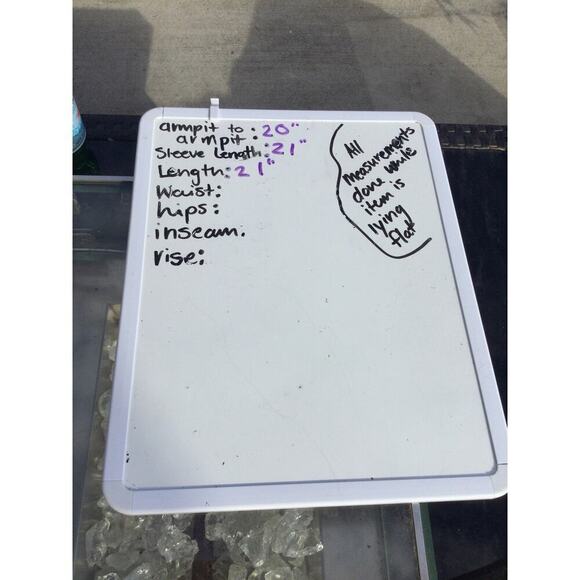 armpit to
armpit: 20"
Sleeve Length: 21"
Length: 21"
Waist:
hips:
inseam:
rise:
All
measurements
done while
item is
lying
flat